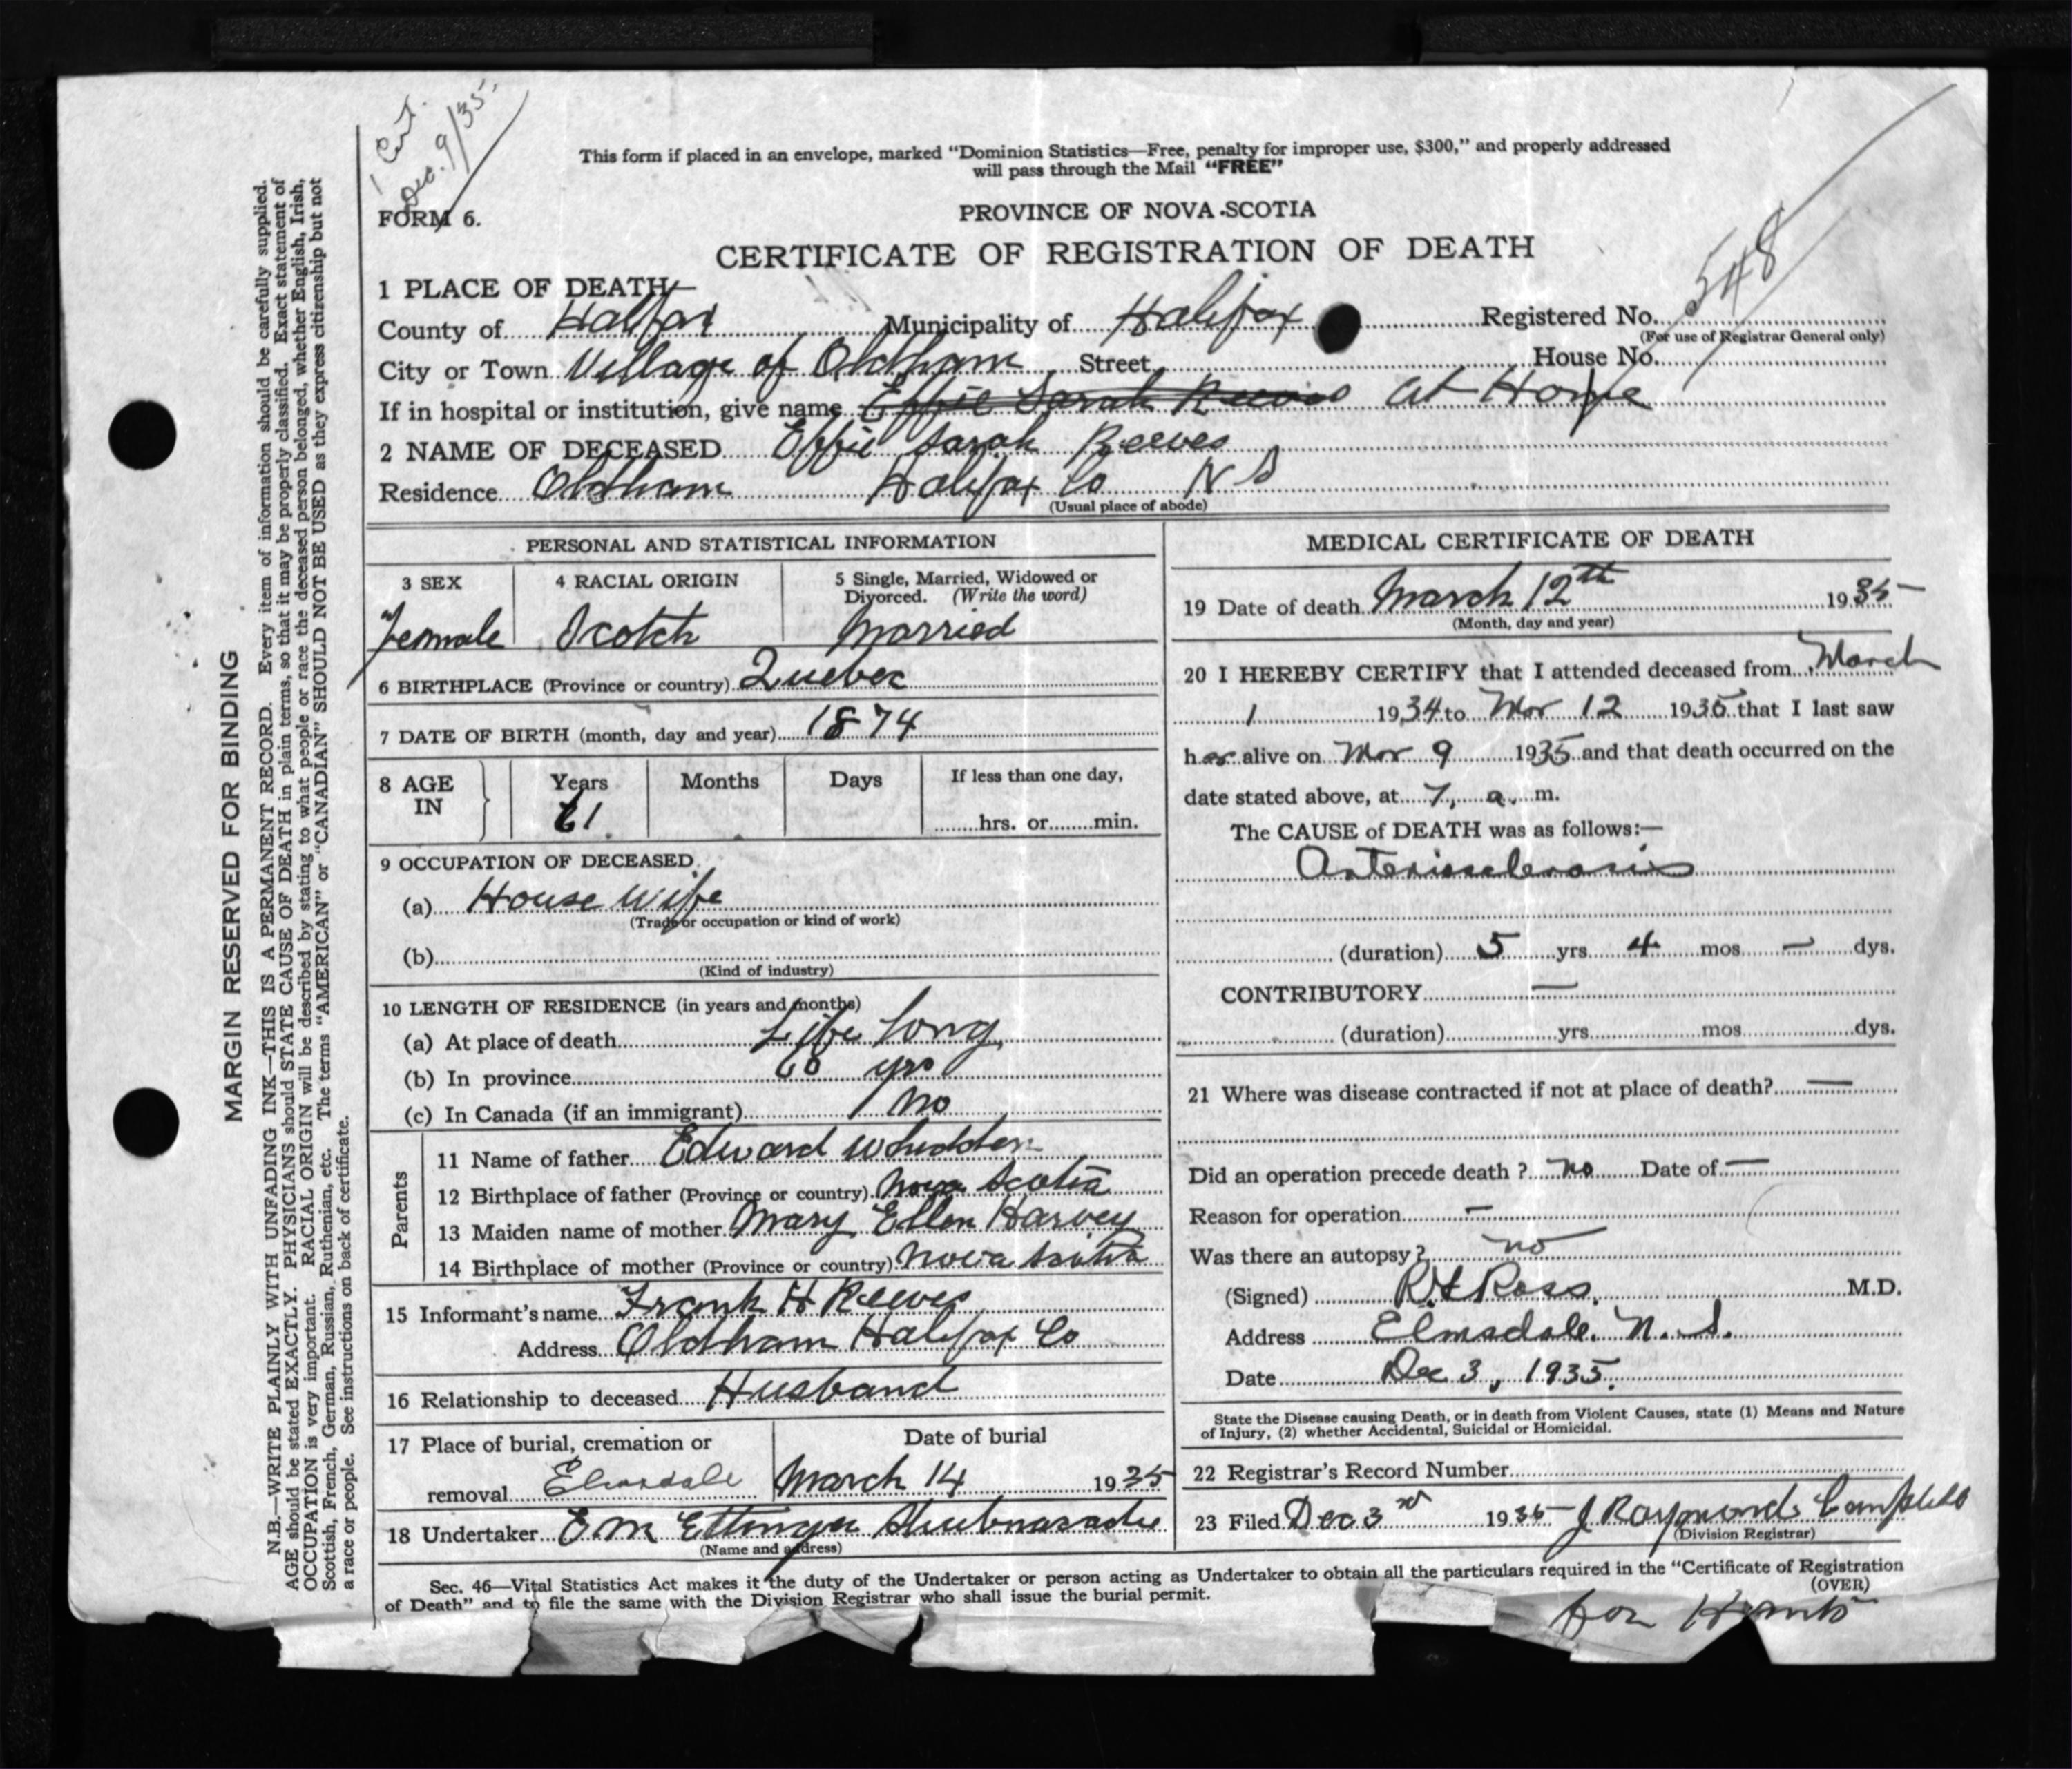 1 Cert.
Dec. 9/35
This form if placed in an envelope, marked "Dominion Statistics—Free, penalty for improper use, $300," and properly addressed
will pass through the Mail "FREE"
FORM 6.
PROVINCE OF NOVA SCOTIA
CERTIFICATE OF REGISTRATION OF DEATH
548
1 PLACE OF DEATH—
County of Halifax Municipality of Halifax Registered No.
(For use of Registrar General only)
City or Town Village of Oldham Street House No.
If in hospital or institution, give name Effie Sarah Reeves at Home
2 NAME OF DECEASED Effie Sarah Reeves
Residence Oldham Halifax Co N S
(Usual place of abode)
PERSONAL AND STATISTICAL INFORMATION
3 SEX 4 RACIAL ORIGIN 5 Single, Married, Widowed or
Divorced. (Write the word)
Female Scotch Married
6 BIRTHPLACE (Province or country) Quebec
7 DATE OF BIRTH (month, day and year) 1874
8 AGE IN Years Months Days If less than one day,
61 hrs. or min.
9 OCCUPATION OF DECEASED
(a) House wife
(Trade or occupation or kind of work)
(b)
(Kind of industry)
10 LENGTH OF RESIDENCE (in years and months)
(a) At place of death Life long
(b) In province 60 yrs
(c) In Canada (if an immigrant) No
Parents
11 Name of father Edward Whidden
12 Birthplace of father (Province or country) Nova Scotia
13 Maiden name of mother Mary Ellen Harvey
14 Birthplace of mother (Province or country) Nova Scotia
15 Informant's name Frank H Reeves
Address Oldham Halifax Co
16 Relationship to deceased Husband
17 Place of burial, cremation or Date of burial
removal Elmsdale March 14 1935
18 Undertaker E M Ettinger Shubenacadie
(Name and address)
MEDICAL CERTIFICATE OF DEATH
19 Date of death March 12th 1935
(Month, day and year)
20 I HEREBY CERTIFY that I attended deceased from March
1 1934 to Mar 12 1935 that I last saw
her alive on Mar 9 1935 and that death occurred on the
date stated above, at 7, a. m.
The CAUSE of DEATH was as follows:—
Arteriosclerosis
(duration) 5 yrs. 4 mos. — dys.
CONTRIBUTORY —
(duration) yrs. mos. dys.
21 Where was disease contracted if not at place of death? —
Did an operation precede death? no Date of —
Reason for operation —
Was there an autopsy? no
(Signed) Ross. M.D.
Address Elmsdale. N. S.
Date Dec 3, 1935.
State the Disease causing Death, or in death from Violent Causes, state (1) Means and Nature
of Injury, (2) whether Accidental, Suicidal or Homicidal.
22 Registrar's Record Number
23 Filed Dec 3rd 1935 J Raymond Campbell
(Division Registrar)
Sec. 46—Vital Statistics Act makes it the duty of the Undertaker or person acting as Undertaker to obtain all the particulars required in the "Certificate of Registration
of Death" and to file the same with the Division Registrar who shall issue the burial permit.
(OVER)
for Hants
MARGIN RESERVED FOR BINDING
N.B.—WRITE PLAINLY WITH UNFADING INK—THIS IS A PERMANENT RECORD. Every item of information should be carefully supplied.
AGE should be stated EXACTLY. PHYSICIANS should STATE CAUSE OF DEATH in plain terms, so that it may be properly classified. Exact statement of
OCCUPATION is very important. RACIAL ORIGIN will be described by stating to what people or race the deceased person belonged, whether English, Irish,
Scottish, French, German, Russian, Ruthenian, etc. The terms "AMERICAN" or "CANADIAN" SHOULD NOT BE USED as they express citizenship but not
a race or people. See instructions on back of certificate.